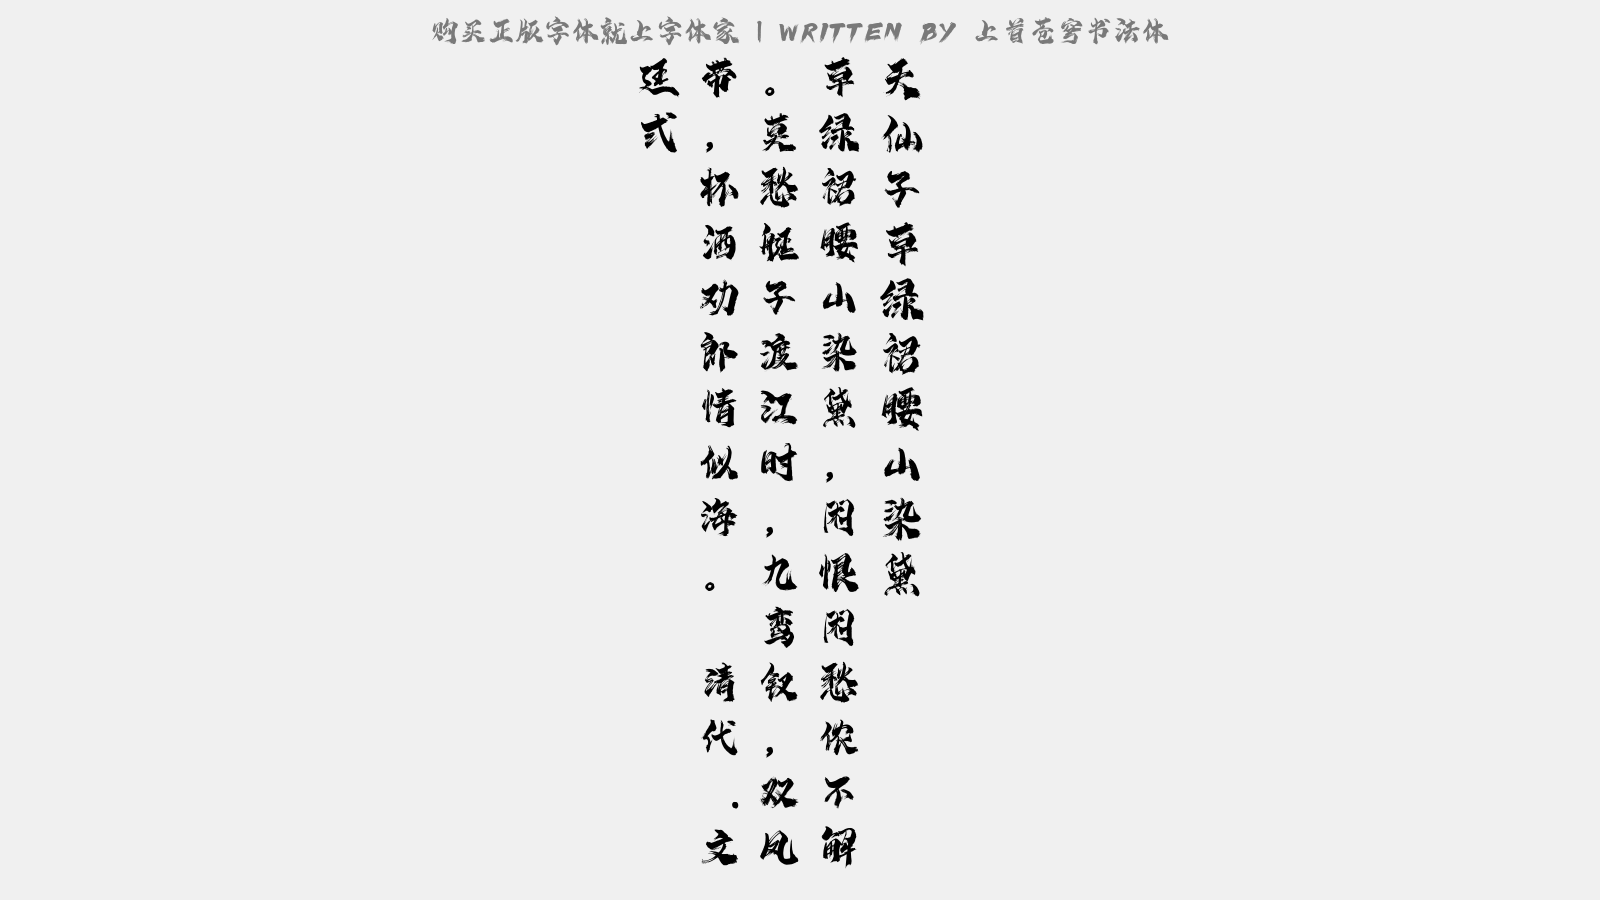 购买正版字体就上字体家 | WRITTEN BY 上首苍穹书法体
天仙子草绿裙腰山染黛
草绿裙腰山染黛，闲恨闲愁侬不解
。莫愁艇子渡江时，九鸾钗，双凤
带，杯酒劝郎情似海。 清代.文
廷式